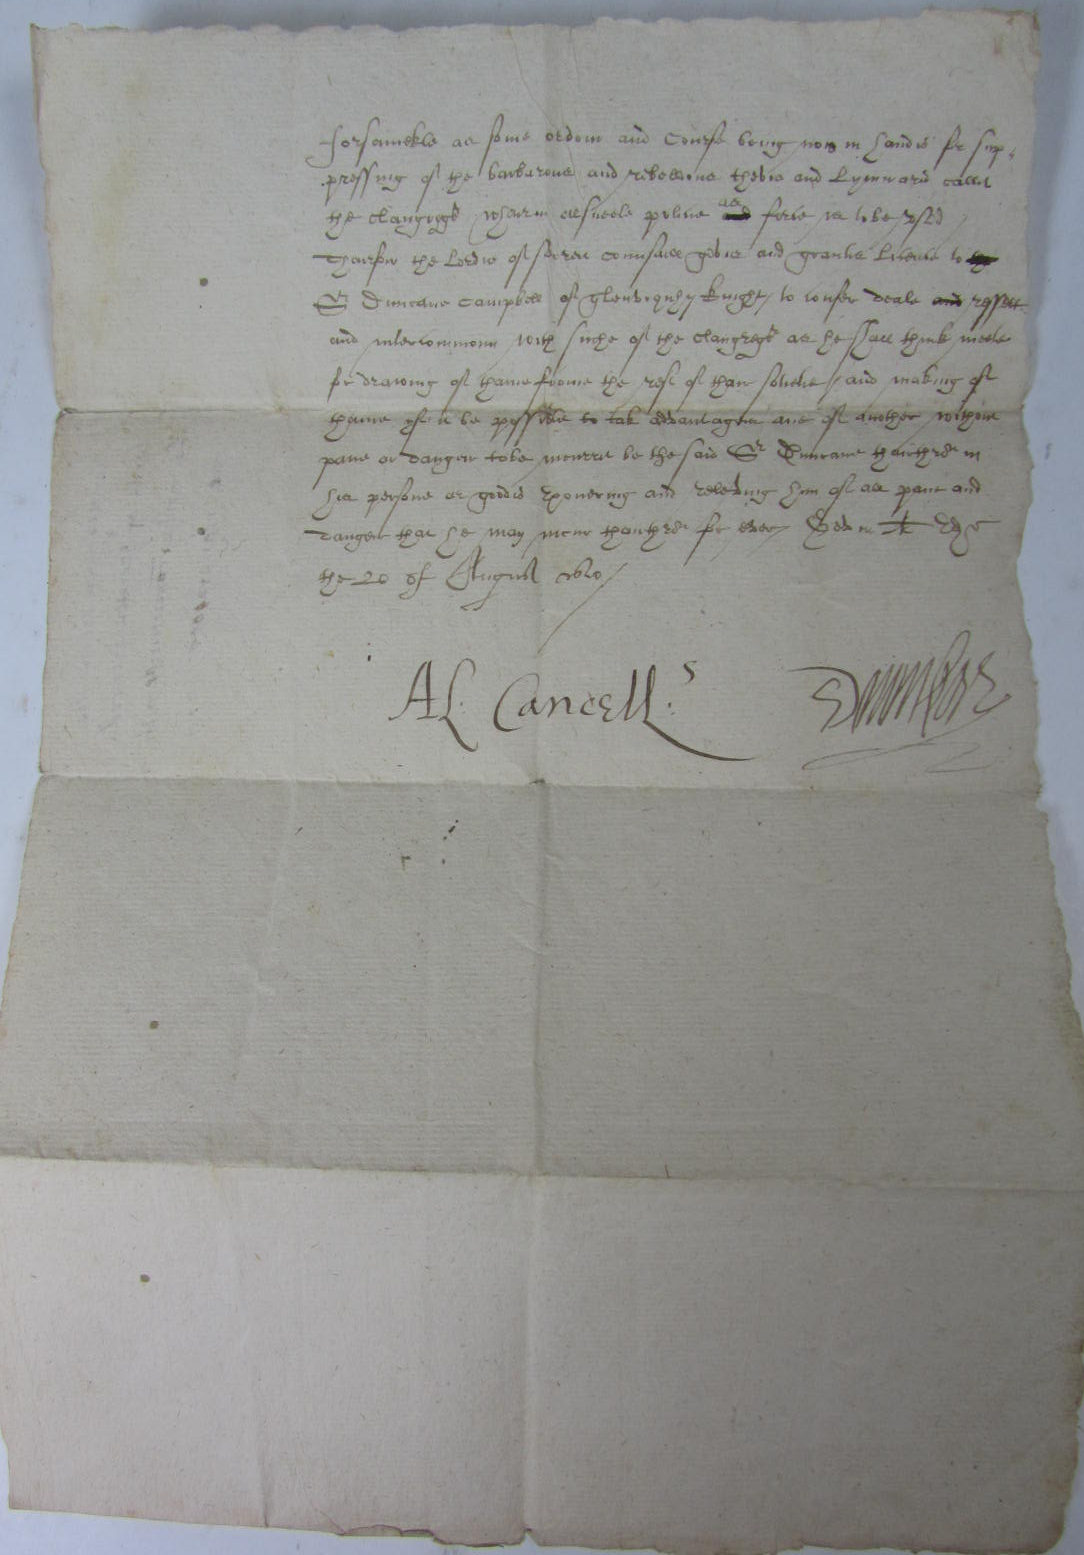 Forsamekle as some ordour and course being now in handis for sup-
pressing of the barbarous and rebellious thevis and lymmaris callit
the Clangregour wherin alsweele police as force is to be usid
Thairfoir the Lordis of secreit counsaill gevis and grantis licence to
Sr Duncane Campbell of glenurquhy knight to confer deale resset
and intercommoun with suche of the Clangregour as he sall think meete
for drawing of thame frome the rest of thair societie and making of
thame yf it be possible to tak advantageis ane of another without
pane or danger to be incurrit be the said Sr Duncane thairthrow in
his persone or goodis exonering and releving him of all pane and
danger that he may incur thairthrow for evir Gevin at Edr
the 20 of August 1610
Al. Cancells
Dunbar